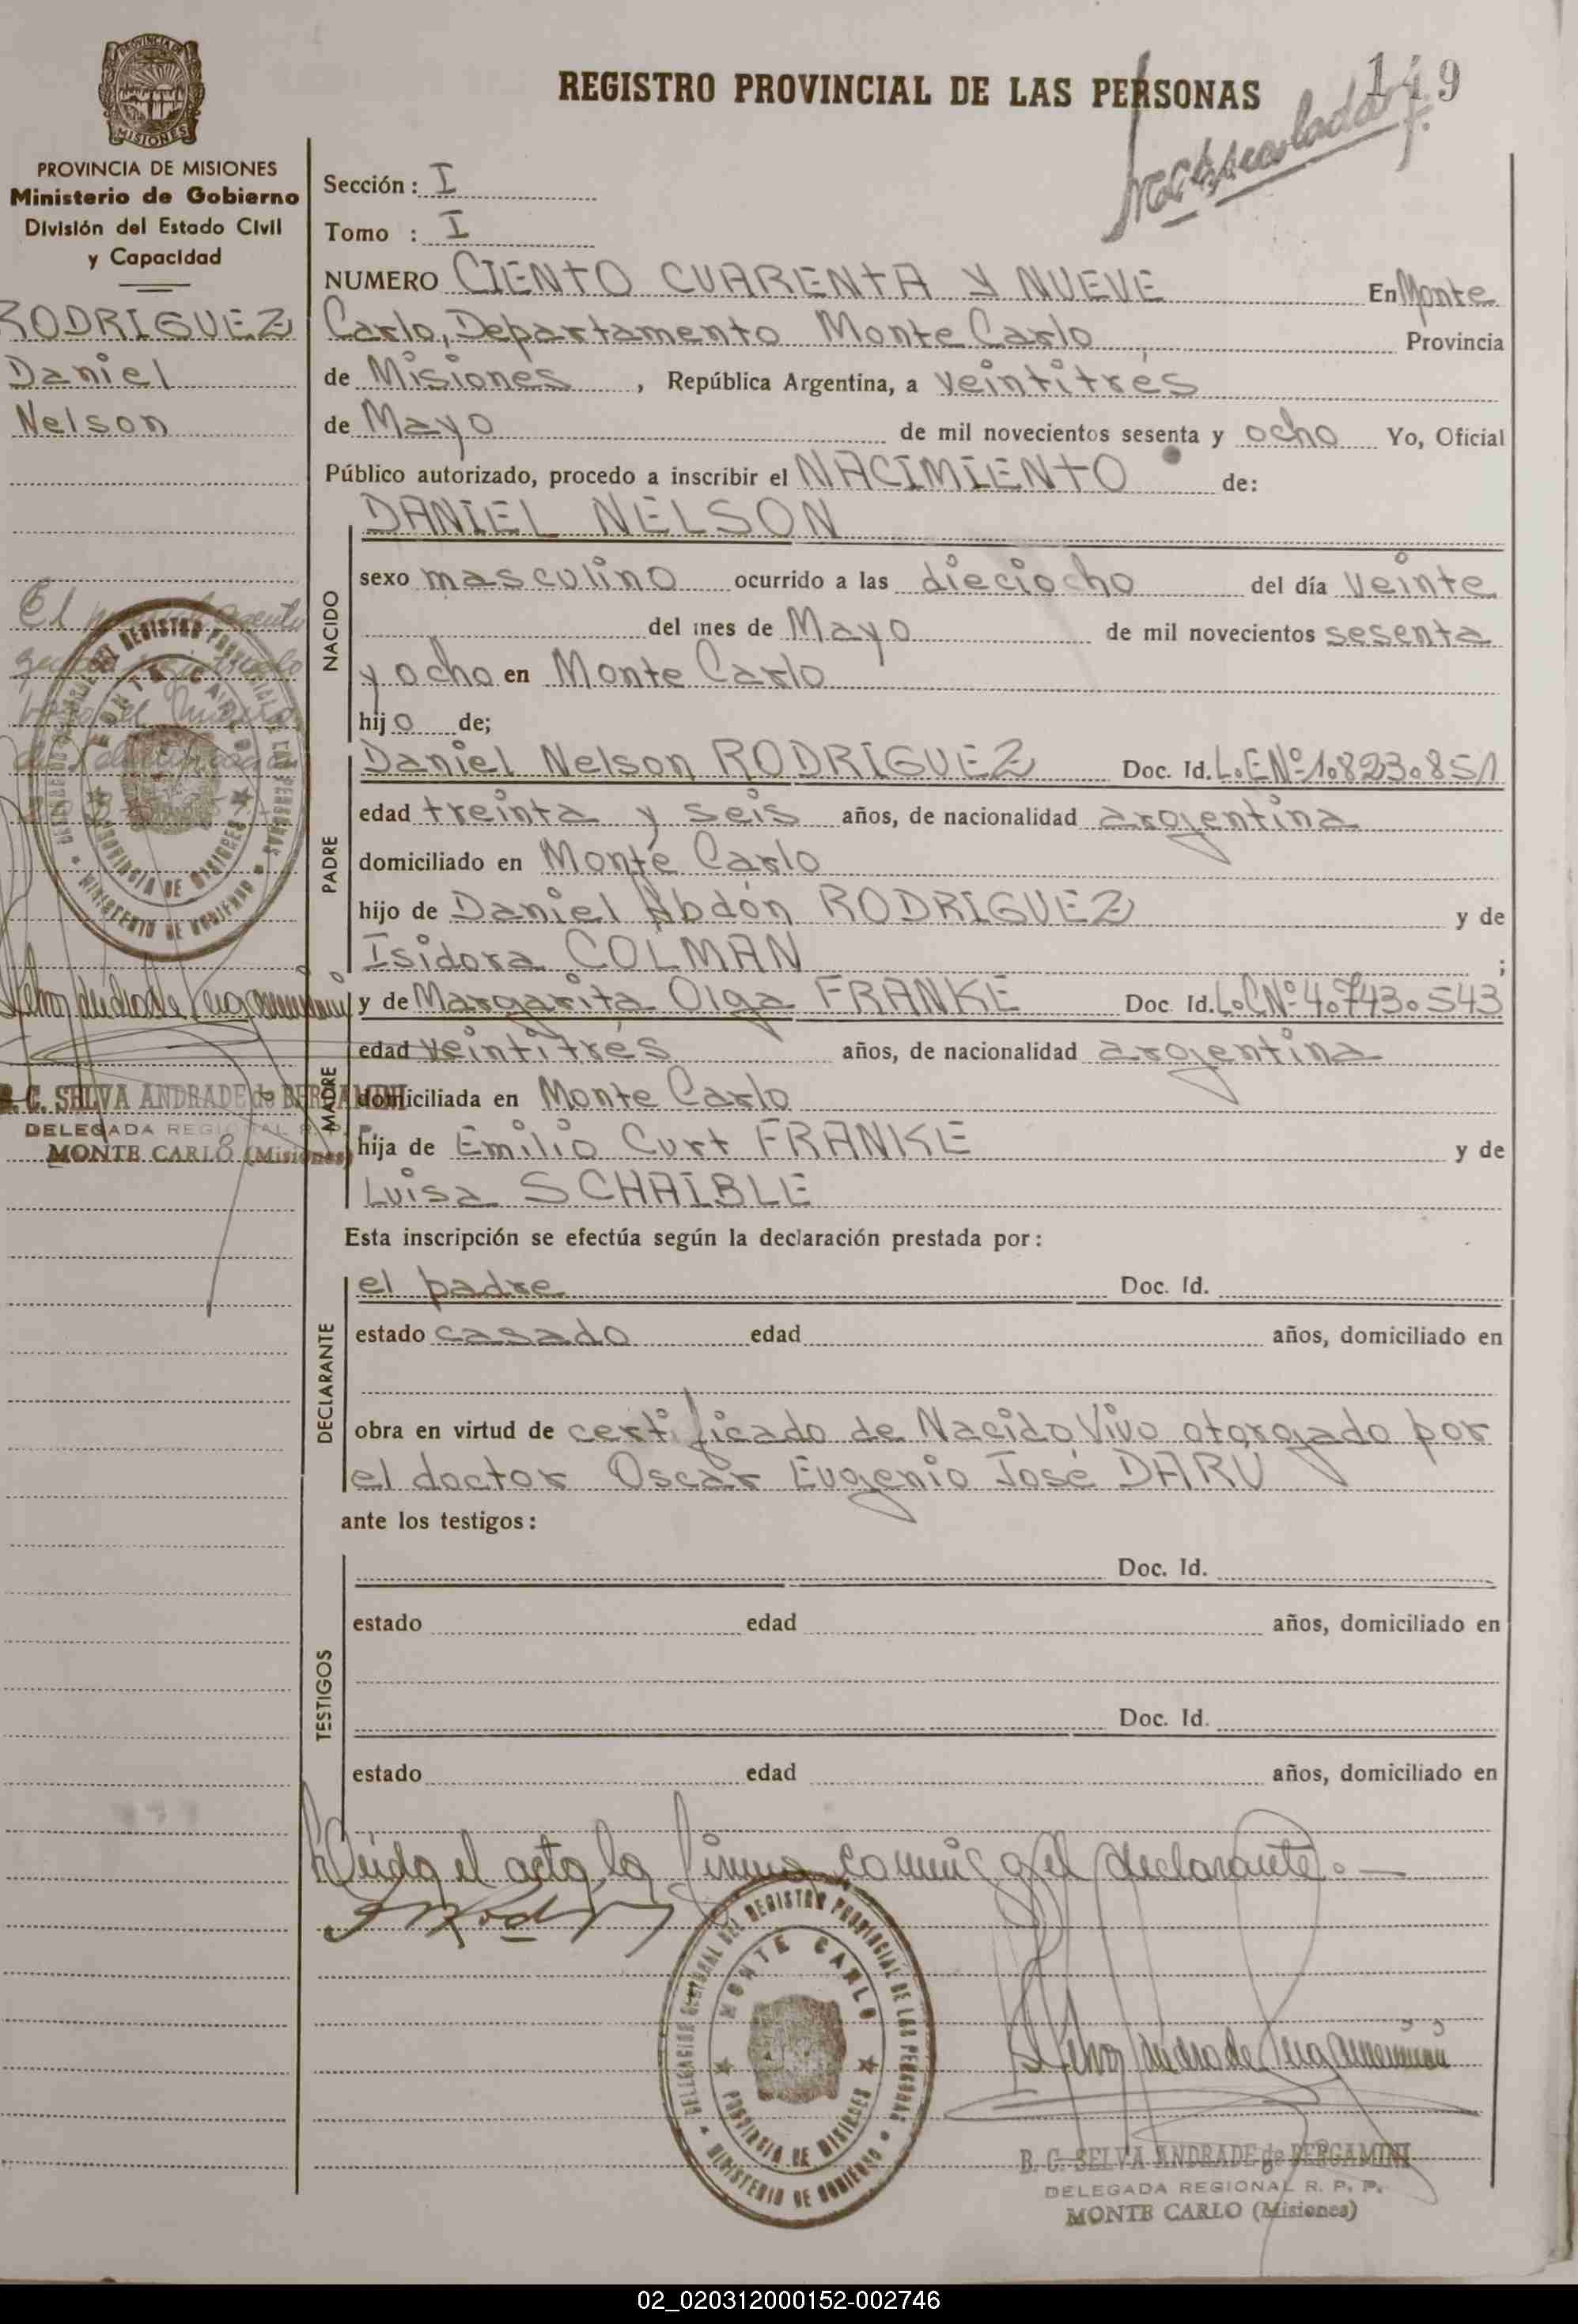 REGISTRO PROVINCIAL DE LAS PERSONAS
149
PROVINCIA DE MISIONES
Ministerio de Gobierno
División del Estado Civil
y Capacidad
RODRIGUEZ
Daniel
Nelson
El
MONTE CARLO
PROVINCIA DE MISIONES
MINISTERIO DE GOBIERNO
B. C. SELVA ANDRADE de BERGAMINI
DELEGADA REGIONAL R. P. P.
MONTE CARLO (Misiones)
Sección: I
Tomo : I
NUMERO CIENTO CUARENTA Y NUEVE En Monte
Carlo, Departamento Monte Carlo, Provincia
de Misiones, República Argentina, a veintitrés
de Mayo de mil novecientos sesenta y ocho Yo, Oficial
Público autorizado, procedo a inscribir el NACIMIENTO de:
DANIEL NELSON
NACIDO
sexo masculino ocurrido a las dieciocho del día veinte
del mes de Mayo de mil novecientos sesenta
y ocho en Monte Carlo
hijo de;
PADRE
Daniel Nelson RODRIGUEZ Doc. Id. L.E.Nº1.823.851
edad treinta y seis años, de nacionalidad argentina
domiciliado en Monte Carlo
hijo de Daniel Abdón RODRIGUEZ y de
Isidora COLMAN ;
MADRE
y de Margarita Olga FRANKE Doc. Id. L.C.Nº4.743.543
edad veintitrés años, de nacionalidad argentina
domiciliada en Monte Carlo
hija de Emilio Curt FRANKE y de
Luisa SCHAIBLE
Esta inscripción se efectúa según la declaración prestada por:
DECLARANTE
el padre Doc. Id.
estado casado edad años, domiciliado en
obra en virtud de certificado de Nacido Vivo otorgado por
el doctor Oscar Eugenio José DARÚ
ante los testigos:
TESTIGOS
Doc. Id.
estado edad años, domiciliado en
Doc. Id.
estado edad años, domiciliado en
Leída el acta, la firma conmigo el declarante.—
DELEGACION REGIONAL DEL REGISTRO PROVINCIAL DE LAS PERSONAS
MONTE CARLO
PROVINCIA DE MISIONES
MINISTERIO DE GOBIERNO
B. C. SELVA ANDRADE de BERGAMINI
DELEGADA REGIONAL R. P. P.
MONTE CARLO (Misiones)
02_020312000152-002746